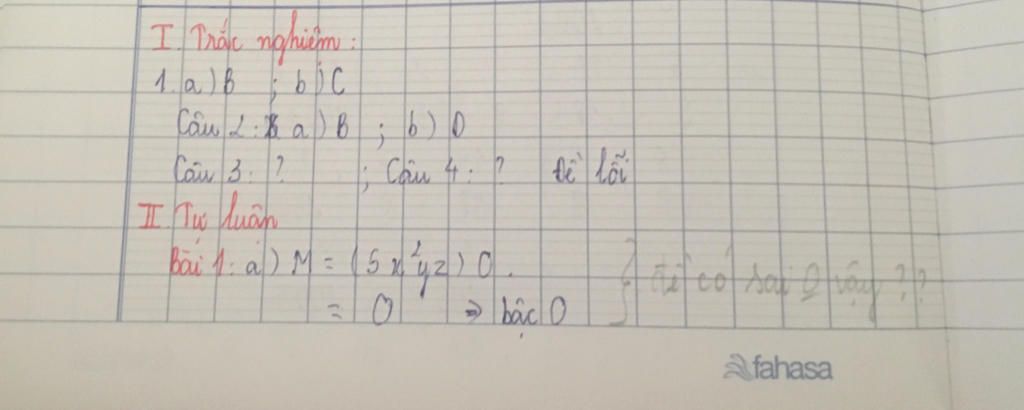 I. Trắc nghiệm:
1. a) B ; b) C
Câu 2: a) B ; b) D
Câu 3: ? ; Câu 4: ? Đề lỗi
II. Tự luận
Bài 1: a) M = (5x²yz) 0.
= 0 => bậc 0
} đề có sai 0 vậy ??
fahasa